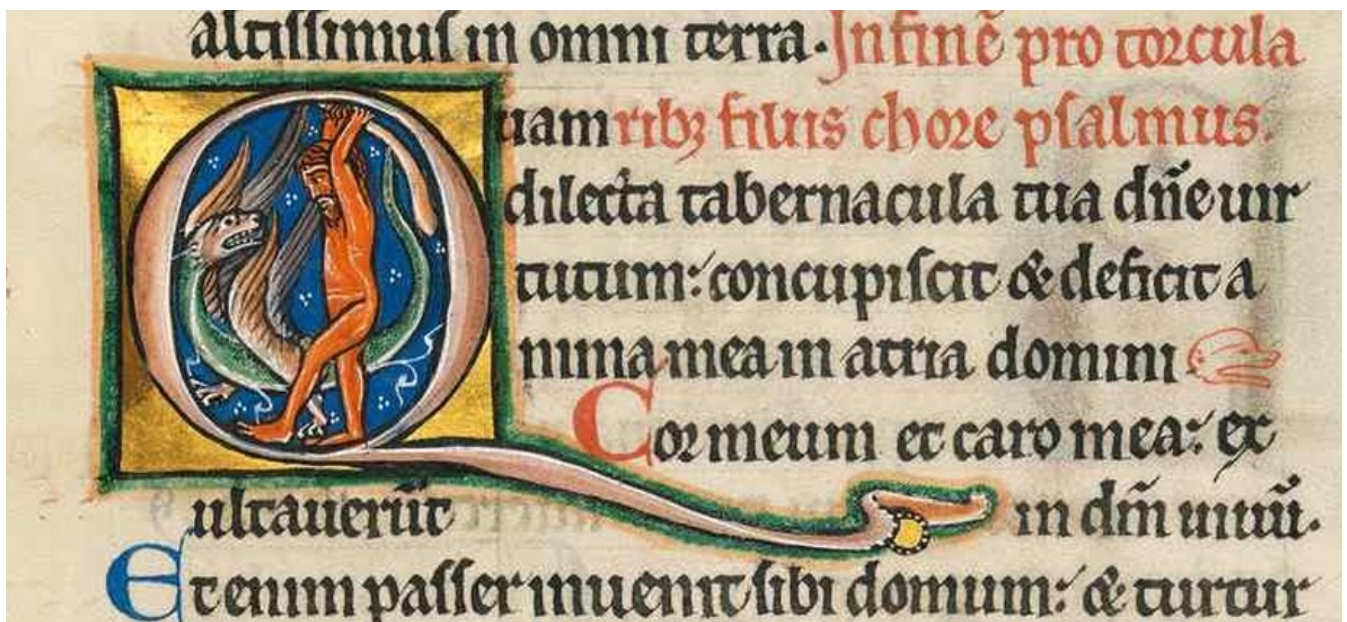 altissimus in omni terra. In finē pro torcula
Quam ribꝫ filiis chore psalmus.
dilecta tabernacula tua dn̄e uir
tutum: concupiscit & deficit a
nima mea in atria domini
Cor meum et caro mea: ex
ultauerūt in dm̄ uiuū.
Etenim passer inuenit sibi domum: & turtur